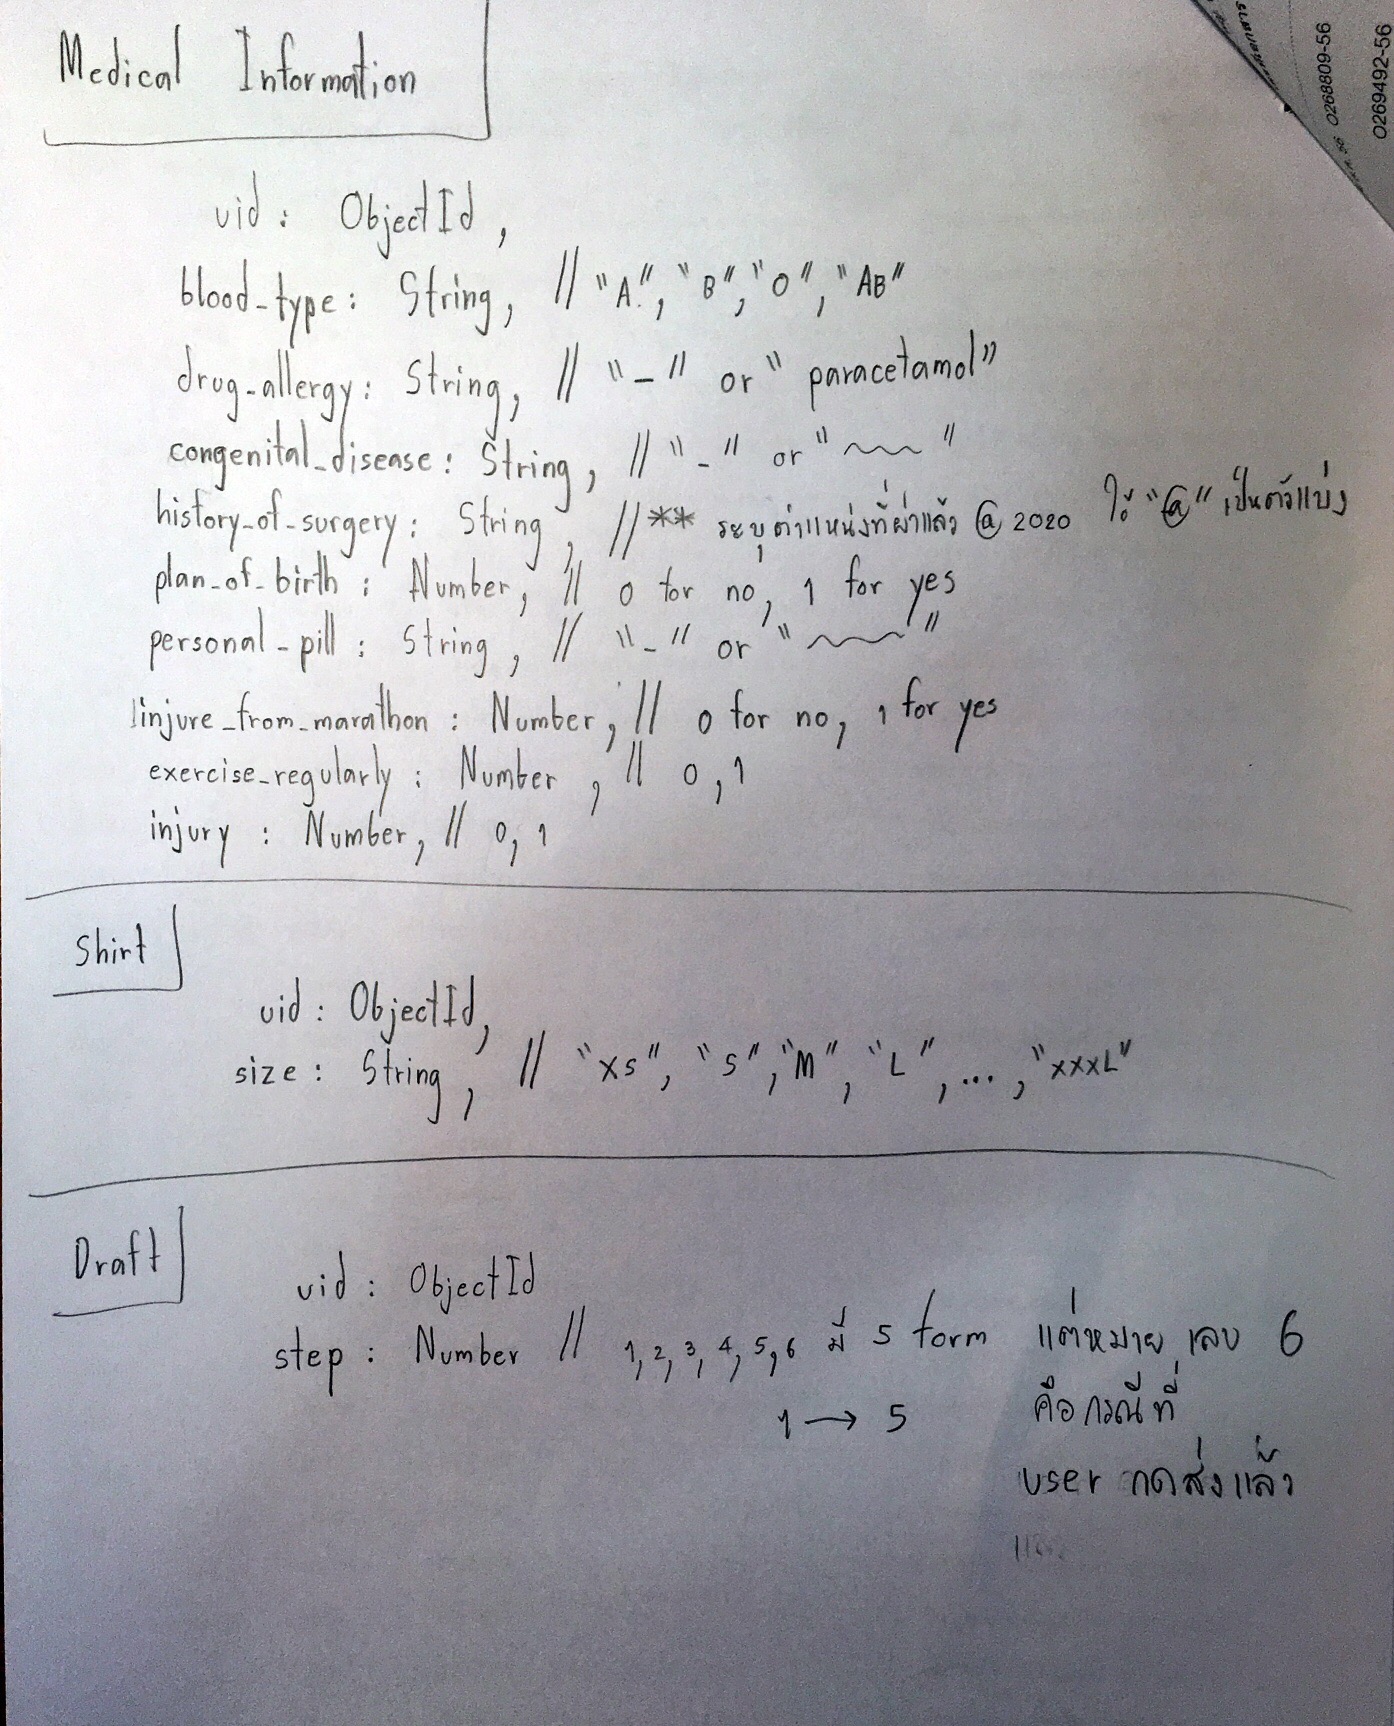 Medical Information
uid : ObjectId ,
blood_type : String , // "A", "B", "O", "AB"
drug_allergy : String , // "-" or "paracetamol"
congenital_disease : String , // "-" or " "
history_of_surgery : String , // ** ระบุตำแหน่งที่ผ่าแล้ว @ 2020 ใช้ "@" เป็นตัวแบ่ง
plan_of_birth : Number , // 0 for no, 1 for yes
personal_pill : String , // "-" or " "
injure_from_marathon : Number , // 0 for no, 1 for yes
exercise_regularly : Number , // 0, 1
injury : Number , // 0, 1
Shirt
uid : ObjectId ,
size : String , // "XS", "S", "M", "L", ... , "XXXL"
Draft
uid : ObjectId
step : Number // 1, 2, 3, 4, 5, 6 มี 5 form แต่หมายเลข 6
1 → 5 คือกรณีที่
user กดส่งแล้ว
0268809-56
0269492-56